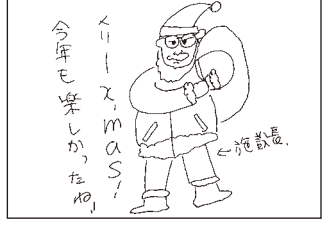 メリーX'mas!
今年も楽しかったね!
←施設長.